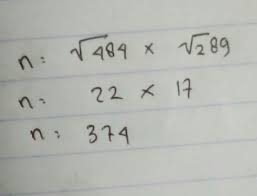 n: √484 × √289
n: 22 × 17
n: 374